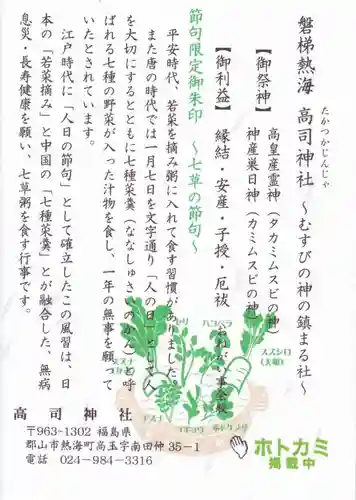 磐梯熱海 高司神社 ～むすびの神の鎮まる社～
たかつかじんじゃ
【御祭神】
高皇産霊神（タカミムスビの神）
神産巣日神（カミムスビの神）
【御利益】 縁結・安産・子授・厄祓
節句限定御朱印 ～七草の節句～
平安時代、若菜を摘み粥に入れて食す習慣がありました。
また唐の時代では一月七日を文字通り「人の日」として人
を大切にするとともに七種菜羹（ななしゅさいのかん）と呼
ばれる七種の野菜が入った汁物を食し、一年の無事を願って
いたとされています。
江戸時代に「人日の節句」として確立したこの風習は、日
本の「若菜摘み」と中国の「七種菜羹」とが融合した、無病
息災・長寿健康を願い、七草粥を食す行事です。
ハコベラ
スズシロ
(大根)
スズナ
ゴギョウ
高司神社
〒963-1302 福島県
郡山市熱海町高玉字南田仲35-1
電話 024-984-3316
ホトカミ
掲載中